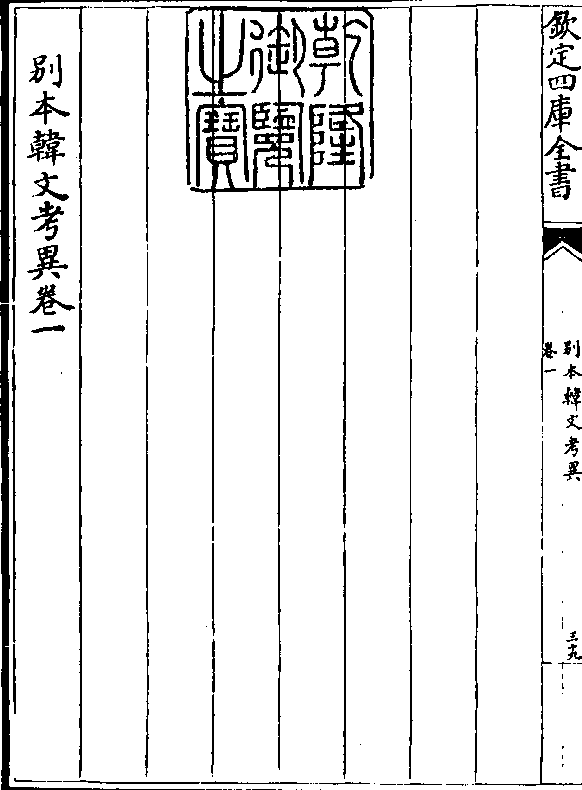 欽定四庫全書
別本韓文考異
卷一
三十九
乾隆
御覽
之寶
別本韓文考異卷一